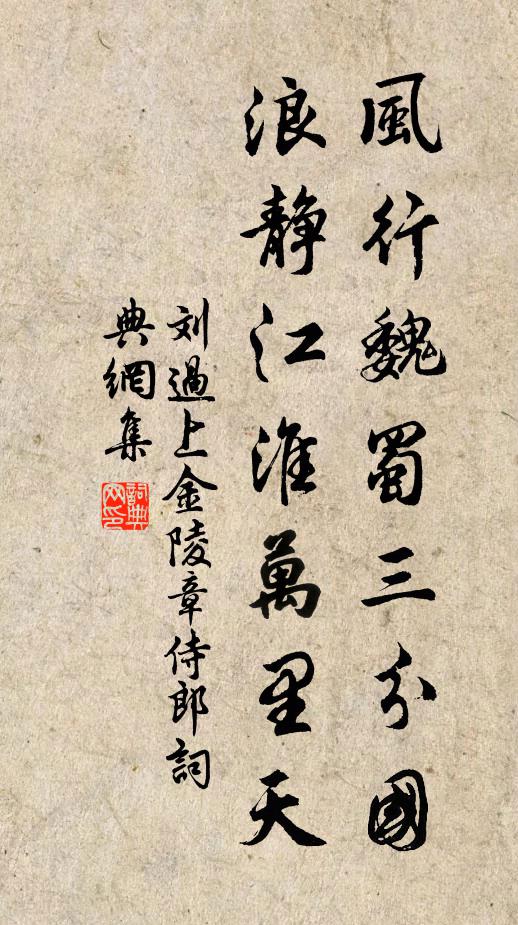 風行魏蜀三分國
浪靜江淮萬里天
刘過上金陵章侍郎詞
典網集
詞典
网印